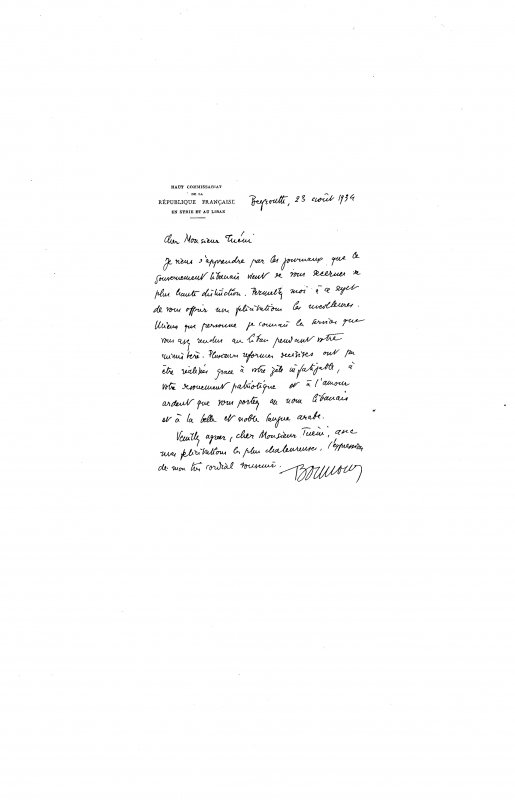 HAUT COMMISSARIAT
DE LA
RÉPUBLIQUE FRANÇAISE
EN SYRIE ET AU LIBAN
Beyrouth, 23 août 1934
Cher Monsieur Tuéni
Je viens d'apprendre par les journaux que le
Gouvernement libanais vient de vous décerner sa
plus haute distinction. Permettez moi à ce sujet
de vous offrir mes félicitations les meilleures.
Mieux que personne je connais les services que
vous avez rendus au Liban pendant votre
ministère. Plusieurs réformes décisives ont pu
être réalisées grâce à votre zèle infatigable, à
votre dévouement patriotique et à l'amour
ardent que vous portez au nom libanais
et à la belle et noble langue arabe.
Veuillez agréer, cher Monsieur Tuéni, avec
mes félicitations les plus chaleureuses, l'expression
de mon très cordial dévoué.